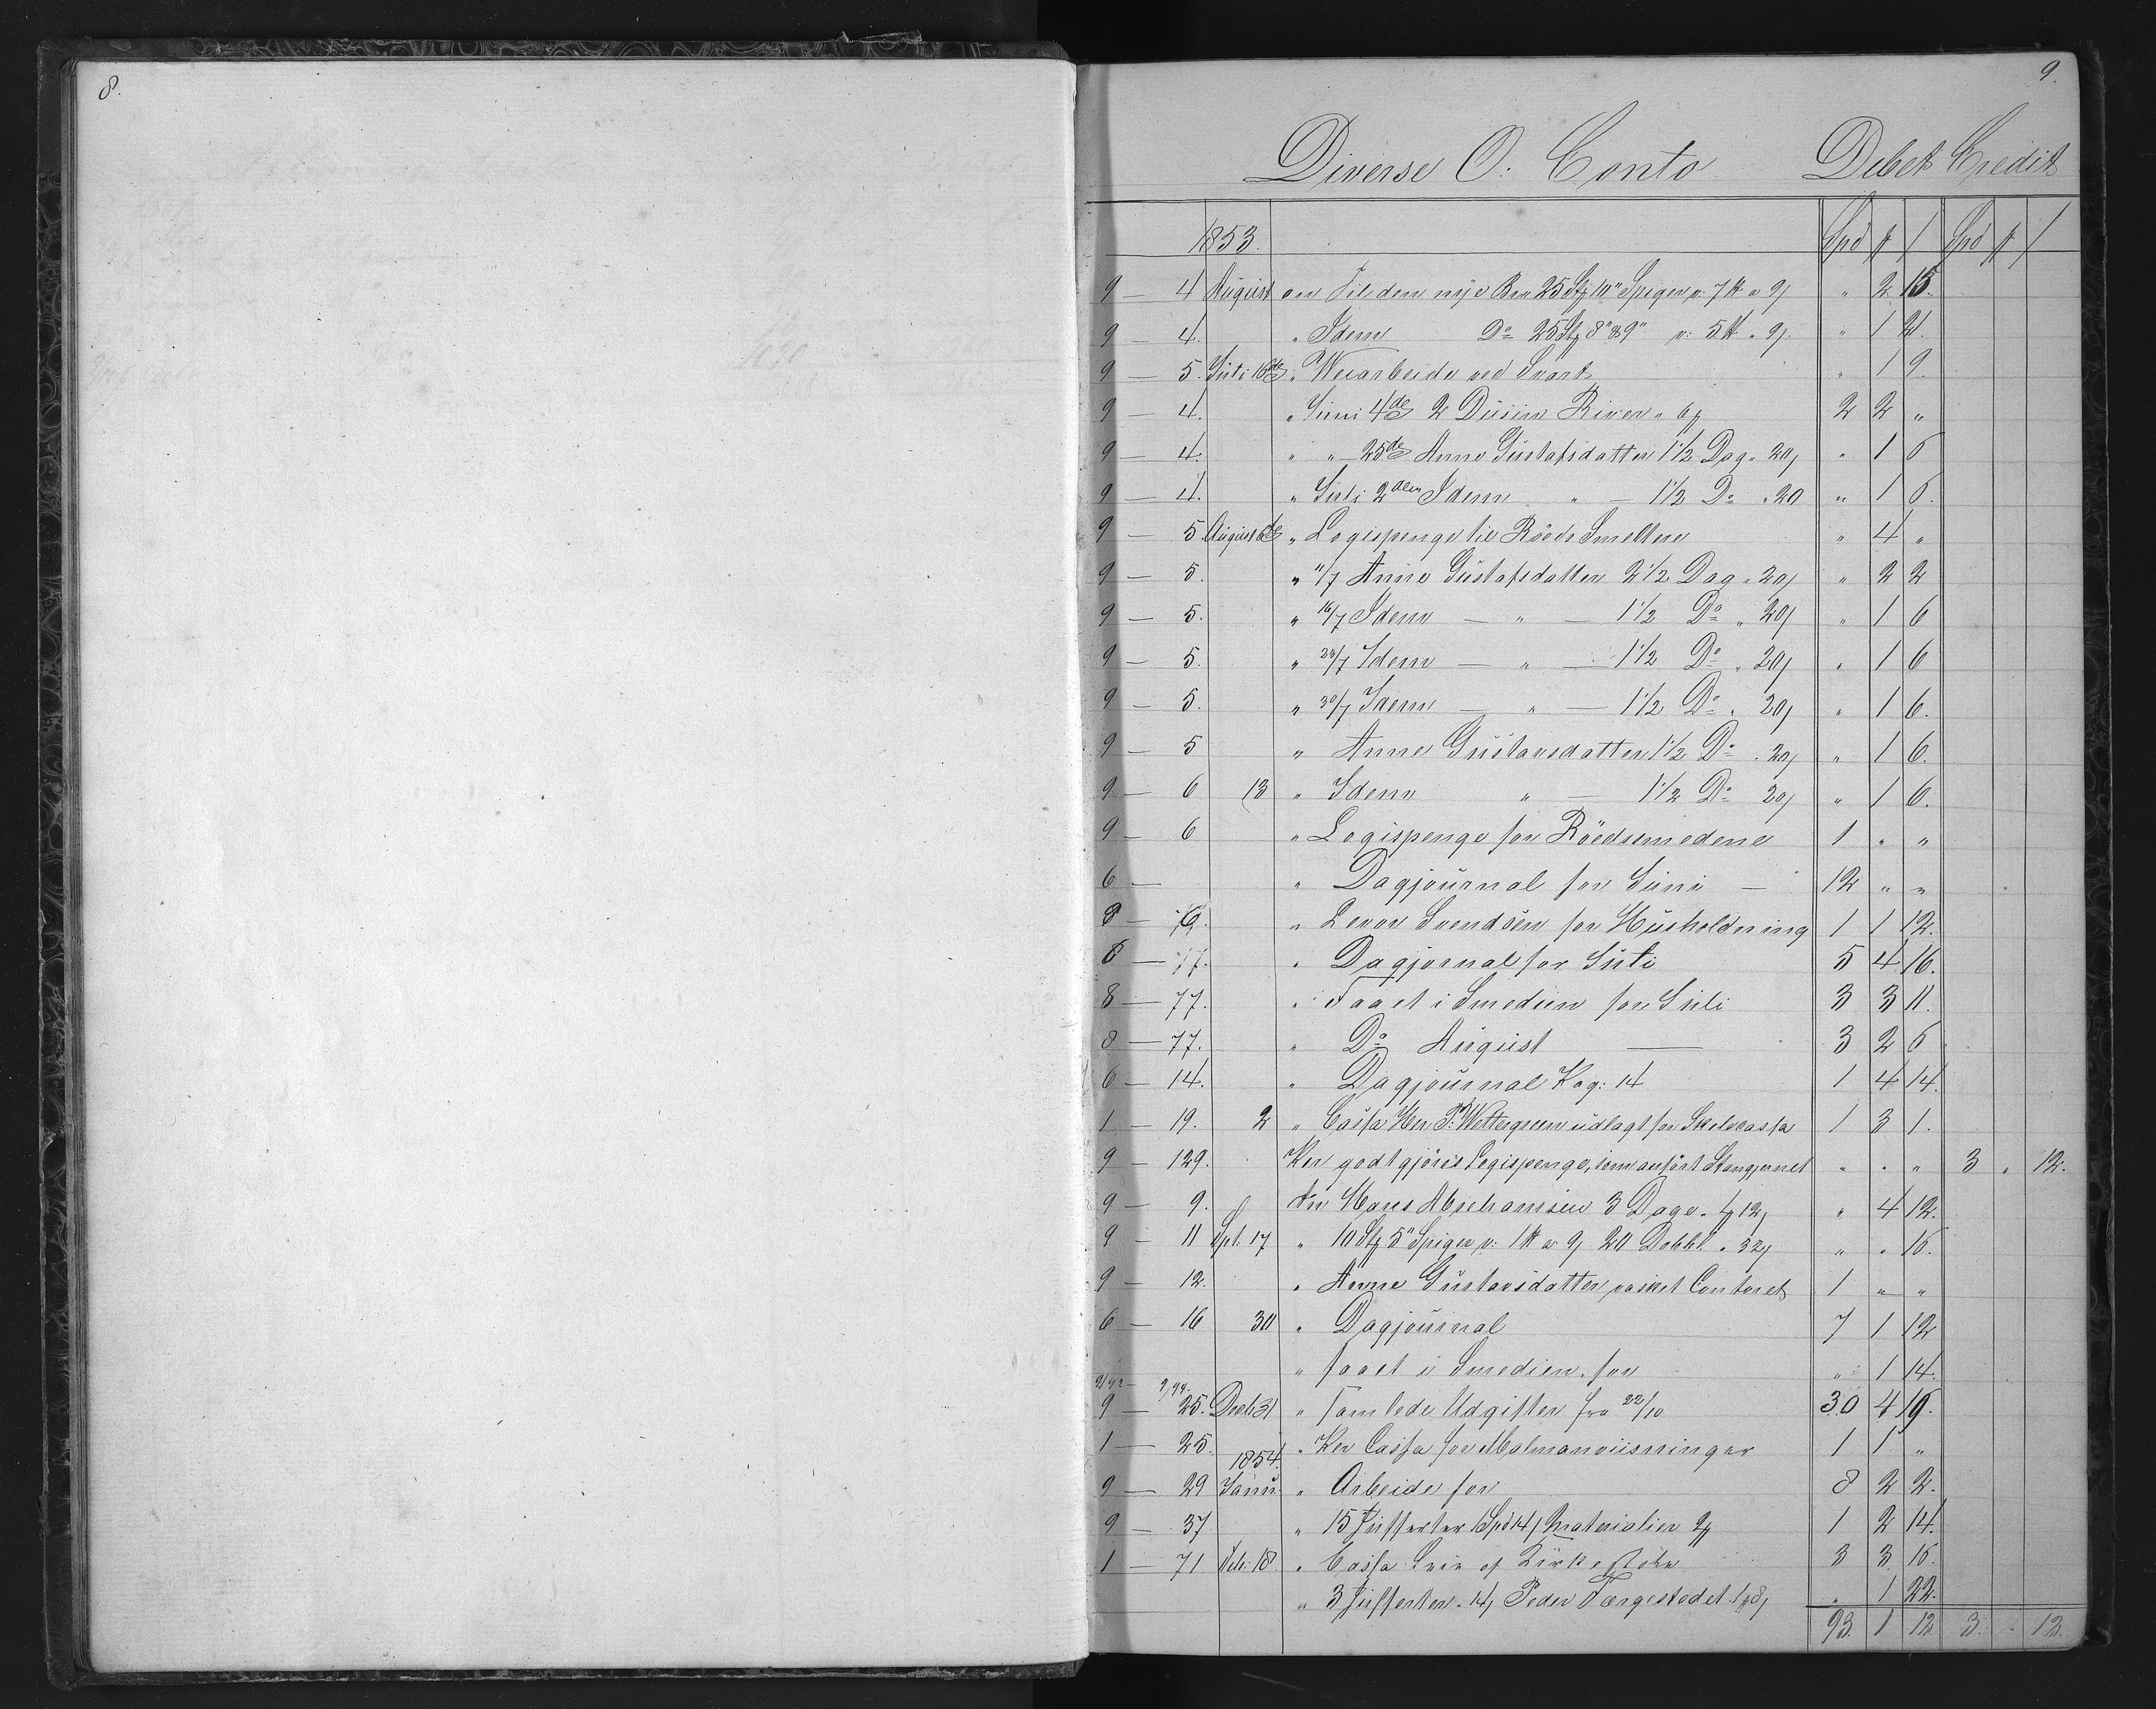 8.
9.
Diverse O. Conto Debet Credit
1853. Spd # / Spd # /
9 — 4 August an Til den nye Bro 25 Stk 10" Spiger v: 7 # a 9/ " 2 15.
9 — 4. " Idem Do 25 Stk 8" & 9" v: 5 # a 9/ " 1 21.
9 — 5. Juli 16de " Veiarbeide ved Svart " 1 9.
9 — 4. " Juni 4de 2 Dusin River a 6 # 2 2 "
9 — 4. " " 25de Anne Gustafsdatter 1 1/2 Dag a 20/ " 1 6
9 — 4. " Juli 2den Idem " — 1 1/2 Do a 20 " 1 6.
9 — 5. August 6te " Logispenge til Röeds Smeltere " 4 "
9 — 5. " 11/7 Anne Gustafsdatter 2 1/2 Dag a 20/ " 2 2
9 — 5. " 16/7 Idem — " — 1 1/2 Do a 20/ " 1 6
9 — 5. " 23/7 Idem — " — 1 1/2 Do a 20/ " 1 6
9 — 5. " 30/7 Idem — " — 1 1/2 Do a 20/ " 1 6.
9 — 5 " Anne Gustavsdatter 1 1/2 Do a 20/ " 1 6.
9 — 6 13 " Idem " — 1 1/2 Do 20/ " 1 6.
9 — 6 " Logispenge for Röedsmedene 1 " "
6 — " Dagjournal for Juni — 12 " "
8 — " Svendsen for Husholdning 1 1 12.
8 — 77. " Dagjornal for Juli 5 4 16.
8 — 77. " Faaet i Smedien for Juli 3 3 11.
8 — 77. " Do August — 3 2 6
6 — 14. " Dagjournal Pag: 14 1 4 14.
1 — 19. 2 " Cassa Her P. Wettergreen udlagt for Skolecassa 1 3 1.
9 — 129. Per godtgjöres Logispenge, som anfört Stangjernet " " " 3 " 12.
9 — 9. An Hans Abrahamsen 3 Dage a 1 # 12/ " 4 12.
9 — 11 Spt. 17 " 10 Stk 5" Spiger v: 1 # a 9/ 20 Dobbl. a 32/ " " 16.
9 — 12. " Anne Gustavsdatter vasket Contoret 1 " "
6 — 16 30 " Dagjournal 7 1 12
" faaet i Smedien for " 1 14.
9 — 25. Decb 31 " Samlede Udgifter fra 22/10 30 4 19.
1 — 25. " Per Cassa for Malmanviisninger 1 1 "
1854.
9 — 29 Janu. " Arbeide for 8 2 2.
9 — 37 " 15 Jufferter 1 Spd 14/ Materialier 2 # 1 2 14.
1 — 71 Feb: 18. " Cassa 3 3 16.
" 3 Jufferter a 14/ Peder Færgestedet 1 # 8/ " 1 22.
93. 1 12 3. " 12.